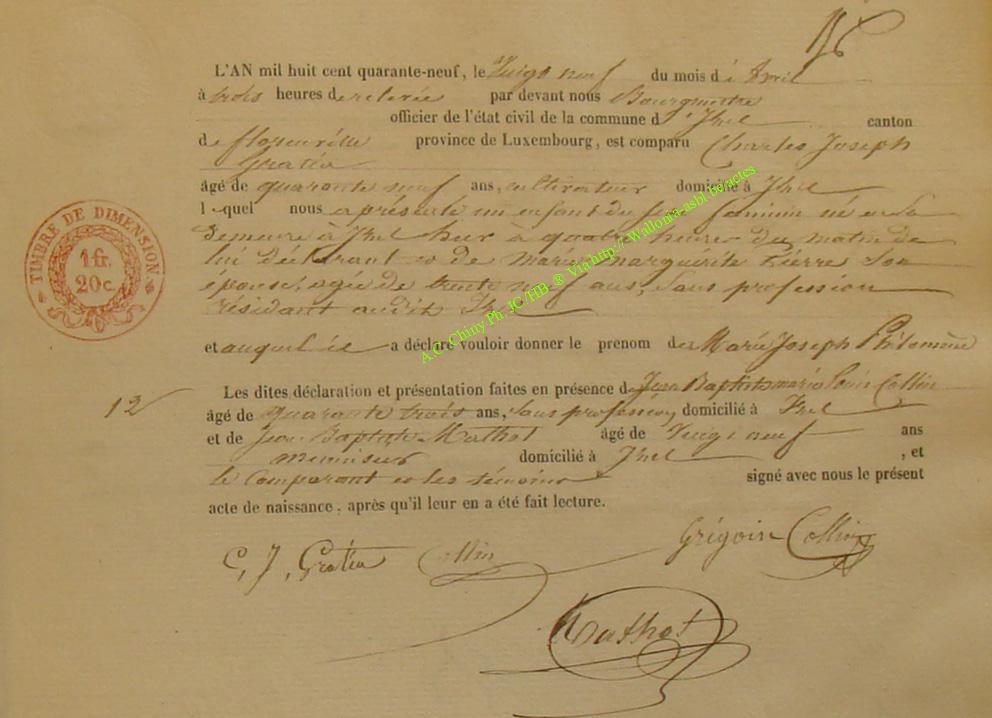 L'AN mil huit cent quarante-neuf, le Vingt neuf du mois d'Avril
à trois heures de relevée par devant nous Bourgmestre
officier de l'état civil de la commune d'Izel canton
de florenville province de Luxembourg, est comparu Charles Joseph
Gratia
âgé de quarante neuf ans, cultivateur domicilié à Izel
lequel nous a présenté un enfant du sexe féminin né en sa
demeure à Izel hier à quatre heures du matin de
lui déclarant et de Marie Marguerite Pierre son
épouse, agée de trente neuf ans, sans profession
résidant audit Izel
et auquel il a déclaré vouloir donner le prenom de Marie Joseph Philomène
12
Les dites déclaration et présentation faites en présence de Jean Baptiste marie Louis Collin
âgé de quarante trois ans, sans profession, domicilié à Izel
et de Jean Baptiste Mathot âgé de Vingt neuf ans
menuisier domicilié à Izel , et
le Comparant et les témoins signé avec nous le présent
acte de naissance, après qu'il leur en a été fait lecture.
C, J, Gratia Collin Grégoire Collin
Mathot
TIMBRE DE DIMENSION
1 fr.
20 c.
A.C. Chiny Ph. JC/HB ® Via http://Wallonia-asbl.be/actes